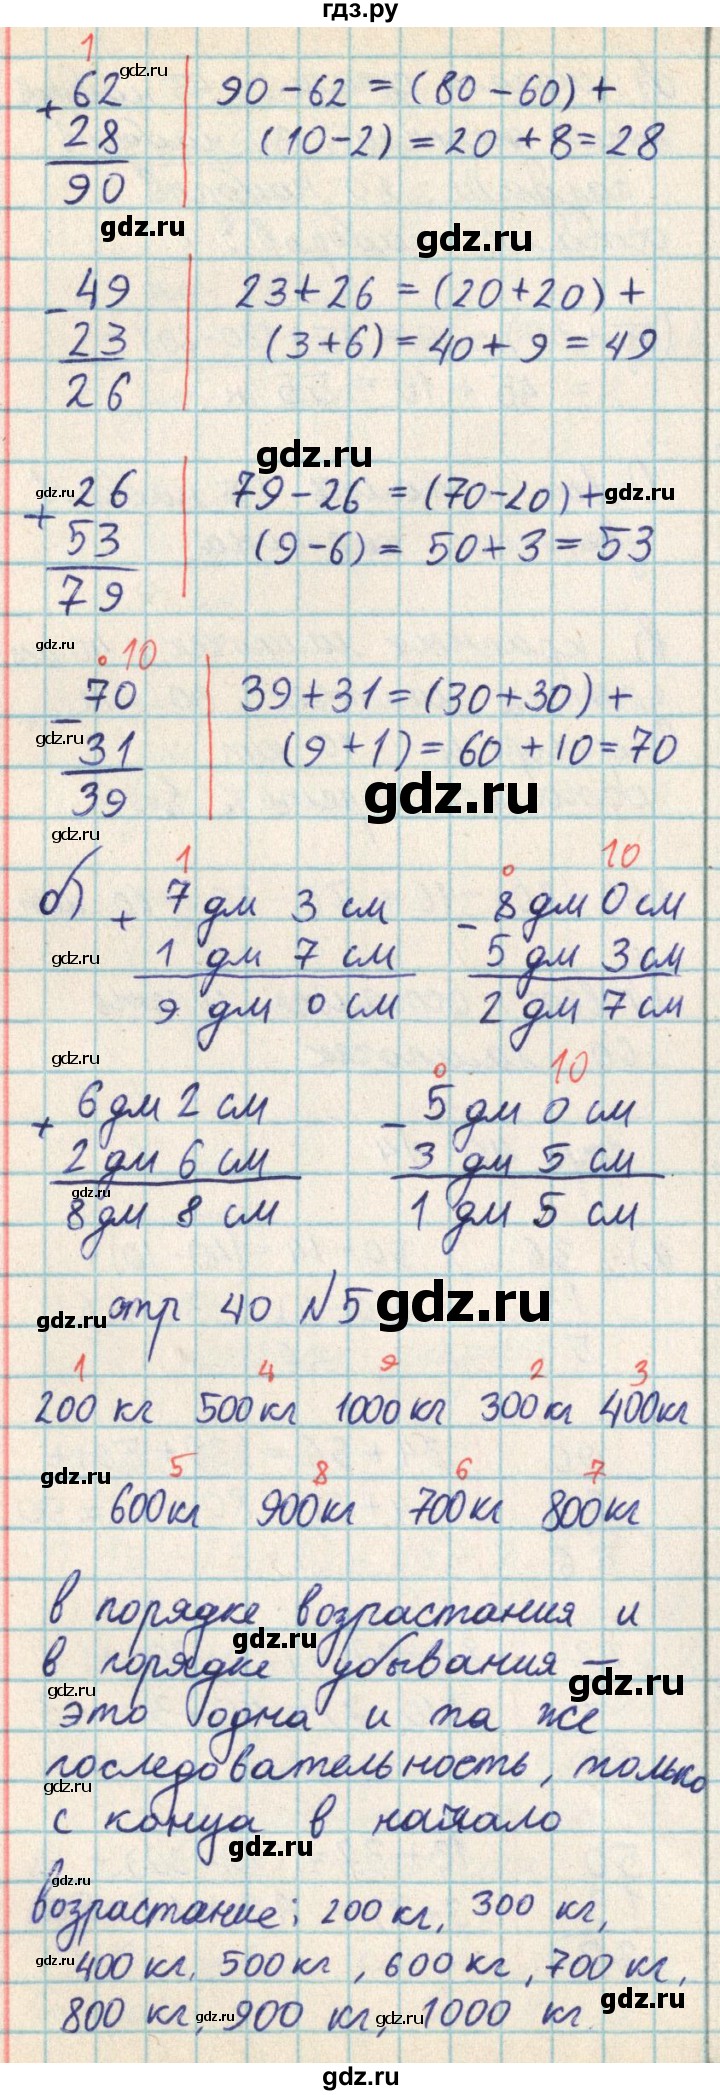 гдз.ру
1
+ 62 90 - 62 = (80 - 60) +
28 (10 - 2) = 20 + 8 = 28
90
gdz.ru
gdz.ru
- 49 23 + 26 = (20 + 20) +
23 (3 + 6) = 40 + 9 = 49
26
gdz.ru
gdz.ru
+ 26 79 - 26 = (70 - 20) +
gdz.ru
53 (9 - 6) = 50 + 3 = 53
79
gdz.ru
• 10
- 70 39 + 31 = (30 + 30) +
gdz.ru
31 (9 + 1) = 60 + 10 = 70
39
gdz.ru
gdz.ru
1 • 10
б) + 7 дм 3 см - 8 дм 0 см
1 дм 7 см 5 дм 3 см
gdz.ru
9 дм 0 см 2 дм 7 см
gdz.ru
• 10
+ 6 дм 2 см - 5 дм 0 см
2 дм 6 см 3 дм 5 см
gdz.ru
8 дм 8 см 1 дм 5 см
gdz.ru
gdz.ru
стр 40 №5
1 4 9 2 3
200 кг 500 кг 1000 кг 300 кг 400 кг
gdz.ru
5 8 6 7
600 кг 900 кг 700 кг 800 кг
в порядке возрастания и
gdz.ru
в порядке убывания —
gdz.ru
gdz.ru
это одна и та же
последовательность, только
gdz.ru
с конца в начало
gdz.ru
gdz.ru
возрастание: 200 кг, 300 кг,
400 кг, 500 кг, 600 кг, 700 кг,
gdz.ru
gdz.ru
800 кг, 900 кг, 1000 кг.
gdz.ru
gdz.ru
gdz.ru